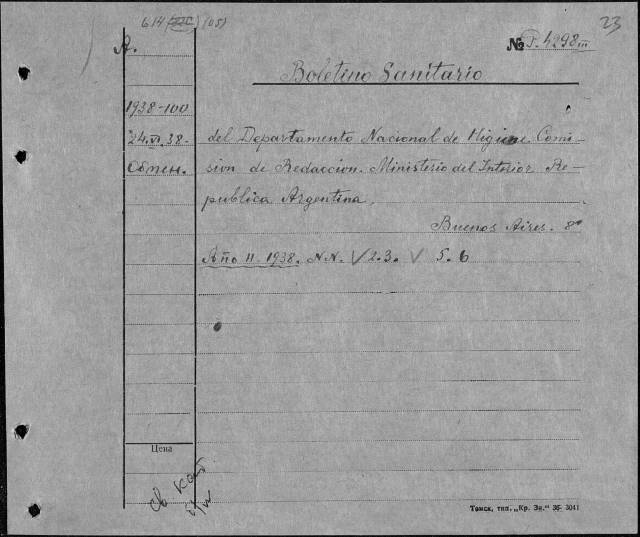 614 (05)
23
№ P. 4298 III
A.
Boletino Sanitario
1938-100
24.VI.38.
Обмен.
del Departamento Nacional de Higiene. Comi-
sion de Redaccion. Ministerio del Interior Re-
publica Argentina.
Buenos Aires. 8°
Año II. 1938. N.N. √ 2.3. √ 5.6
Цена
Св кат
Томск, тип. „Кр. Зн.“ 36 3041